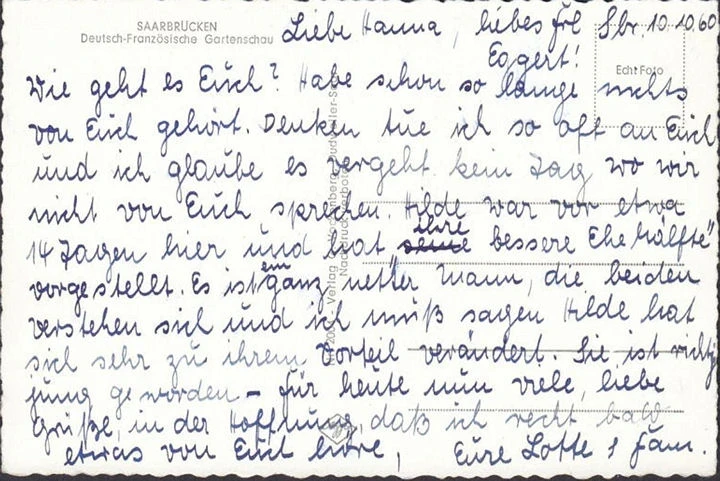 SAARBRÜCKEN
Deutsch-Französische Gartenschau
Echt Foto
Liebe Hanna, liebes Frl Sbr, 10.10.60
Eggert!
Wie geht es Euch? Habe schon so lange nichts
von Euch gehört. Denken tue ich so oft an Euch
und ich glaube es vergeht kein Tag wo wir
nicht von Euch sprechen. Hilde war vor etwa
14 Tagen hier und hat ihre bessere Ehe Hälfte"
vorgestellt. Es ist ein ganz netter Mann, die beiden
verstehen sich und ich muß sagen Hilde hat
sich sehr zu ihrem Vorteil verändert. Sie ist richtig
jung geworden – für heute nun viele, liebe
Grüße, in der Hoffnung, daß ich recht bald
etwas von Euch höre, Eure Lotte & Fam.
Verlag
Nachdruck verboten